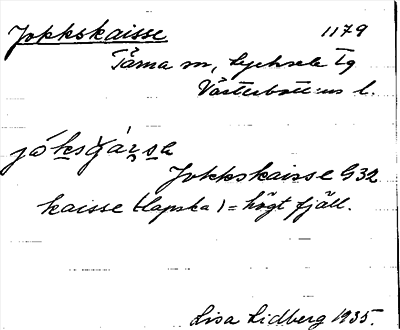 Jokkskaisse 1179
Tärna sn, Lycksele Tg
Västerbottens l.
Jokkskaisse G32
kaisse (lapska) = högt fjäll.
Lisa Lidberg 1935.